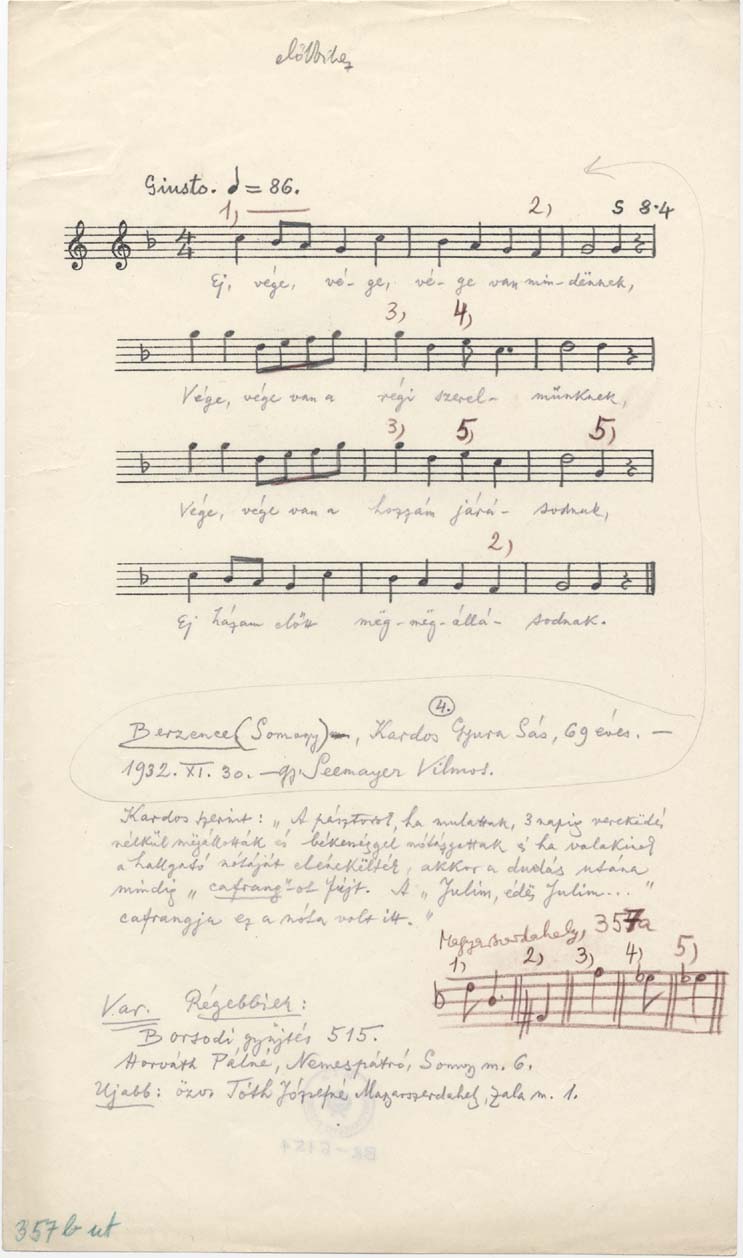 előbbihez
Giusto. = 86.
1) 2) 5 8·4
4 4
Ej, vége, vé- ge, vé- ge van min-dënnek,
3) 4)
Vége, vége van a régi szerel- münknek,
3) 5) 5)
Vége, vége van a hozzám járá- sodnak,
2)
Ej házam előtt mëg-mëg-állá- sodnak.
4.
Berzence (Somogy), Kardos Gyura Sás, 69 éves. —
1932. XI. 30. — gy. Seemayer Vilmos.
Kardos szerint: „A pásztorok, ha mulattak, 3 napig verekëdés
nélkül mëgállották és békességgel nótázgattak s ha valakinek
a hallgató nótáját elénekölték, akkor a dudás utána
mindig „cafrang"-ot fújt. A „Julim, édës Julim..."
cafrangja ez a nóta volt itt."
Magyarszerdahely, 357a
1) 2) 3) 4) 5)
Var. Régebbiek:
Borsodi gyűjtés 515.
Horváth Pálné, Nemespátró, Somogy m. 6.
Ujabb: özv. Tóth Józsefné Magyarszerdahely, Zala m. 1.
357b ut